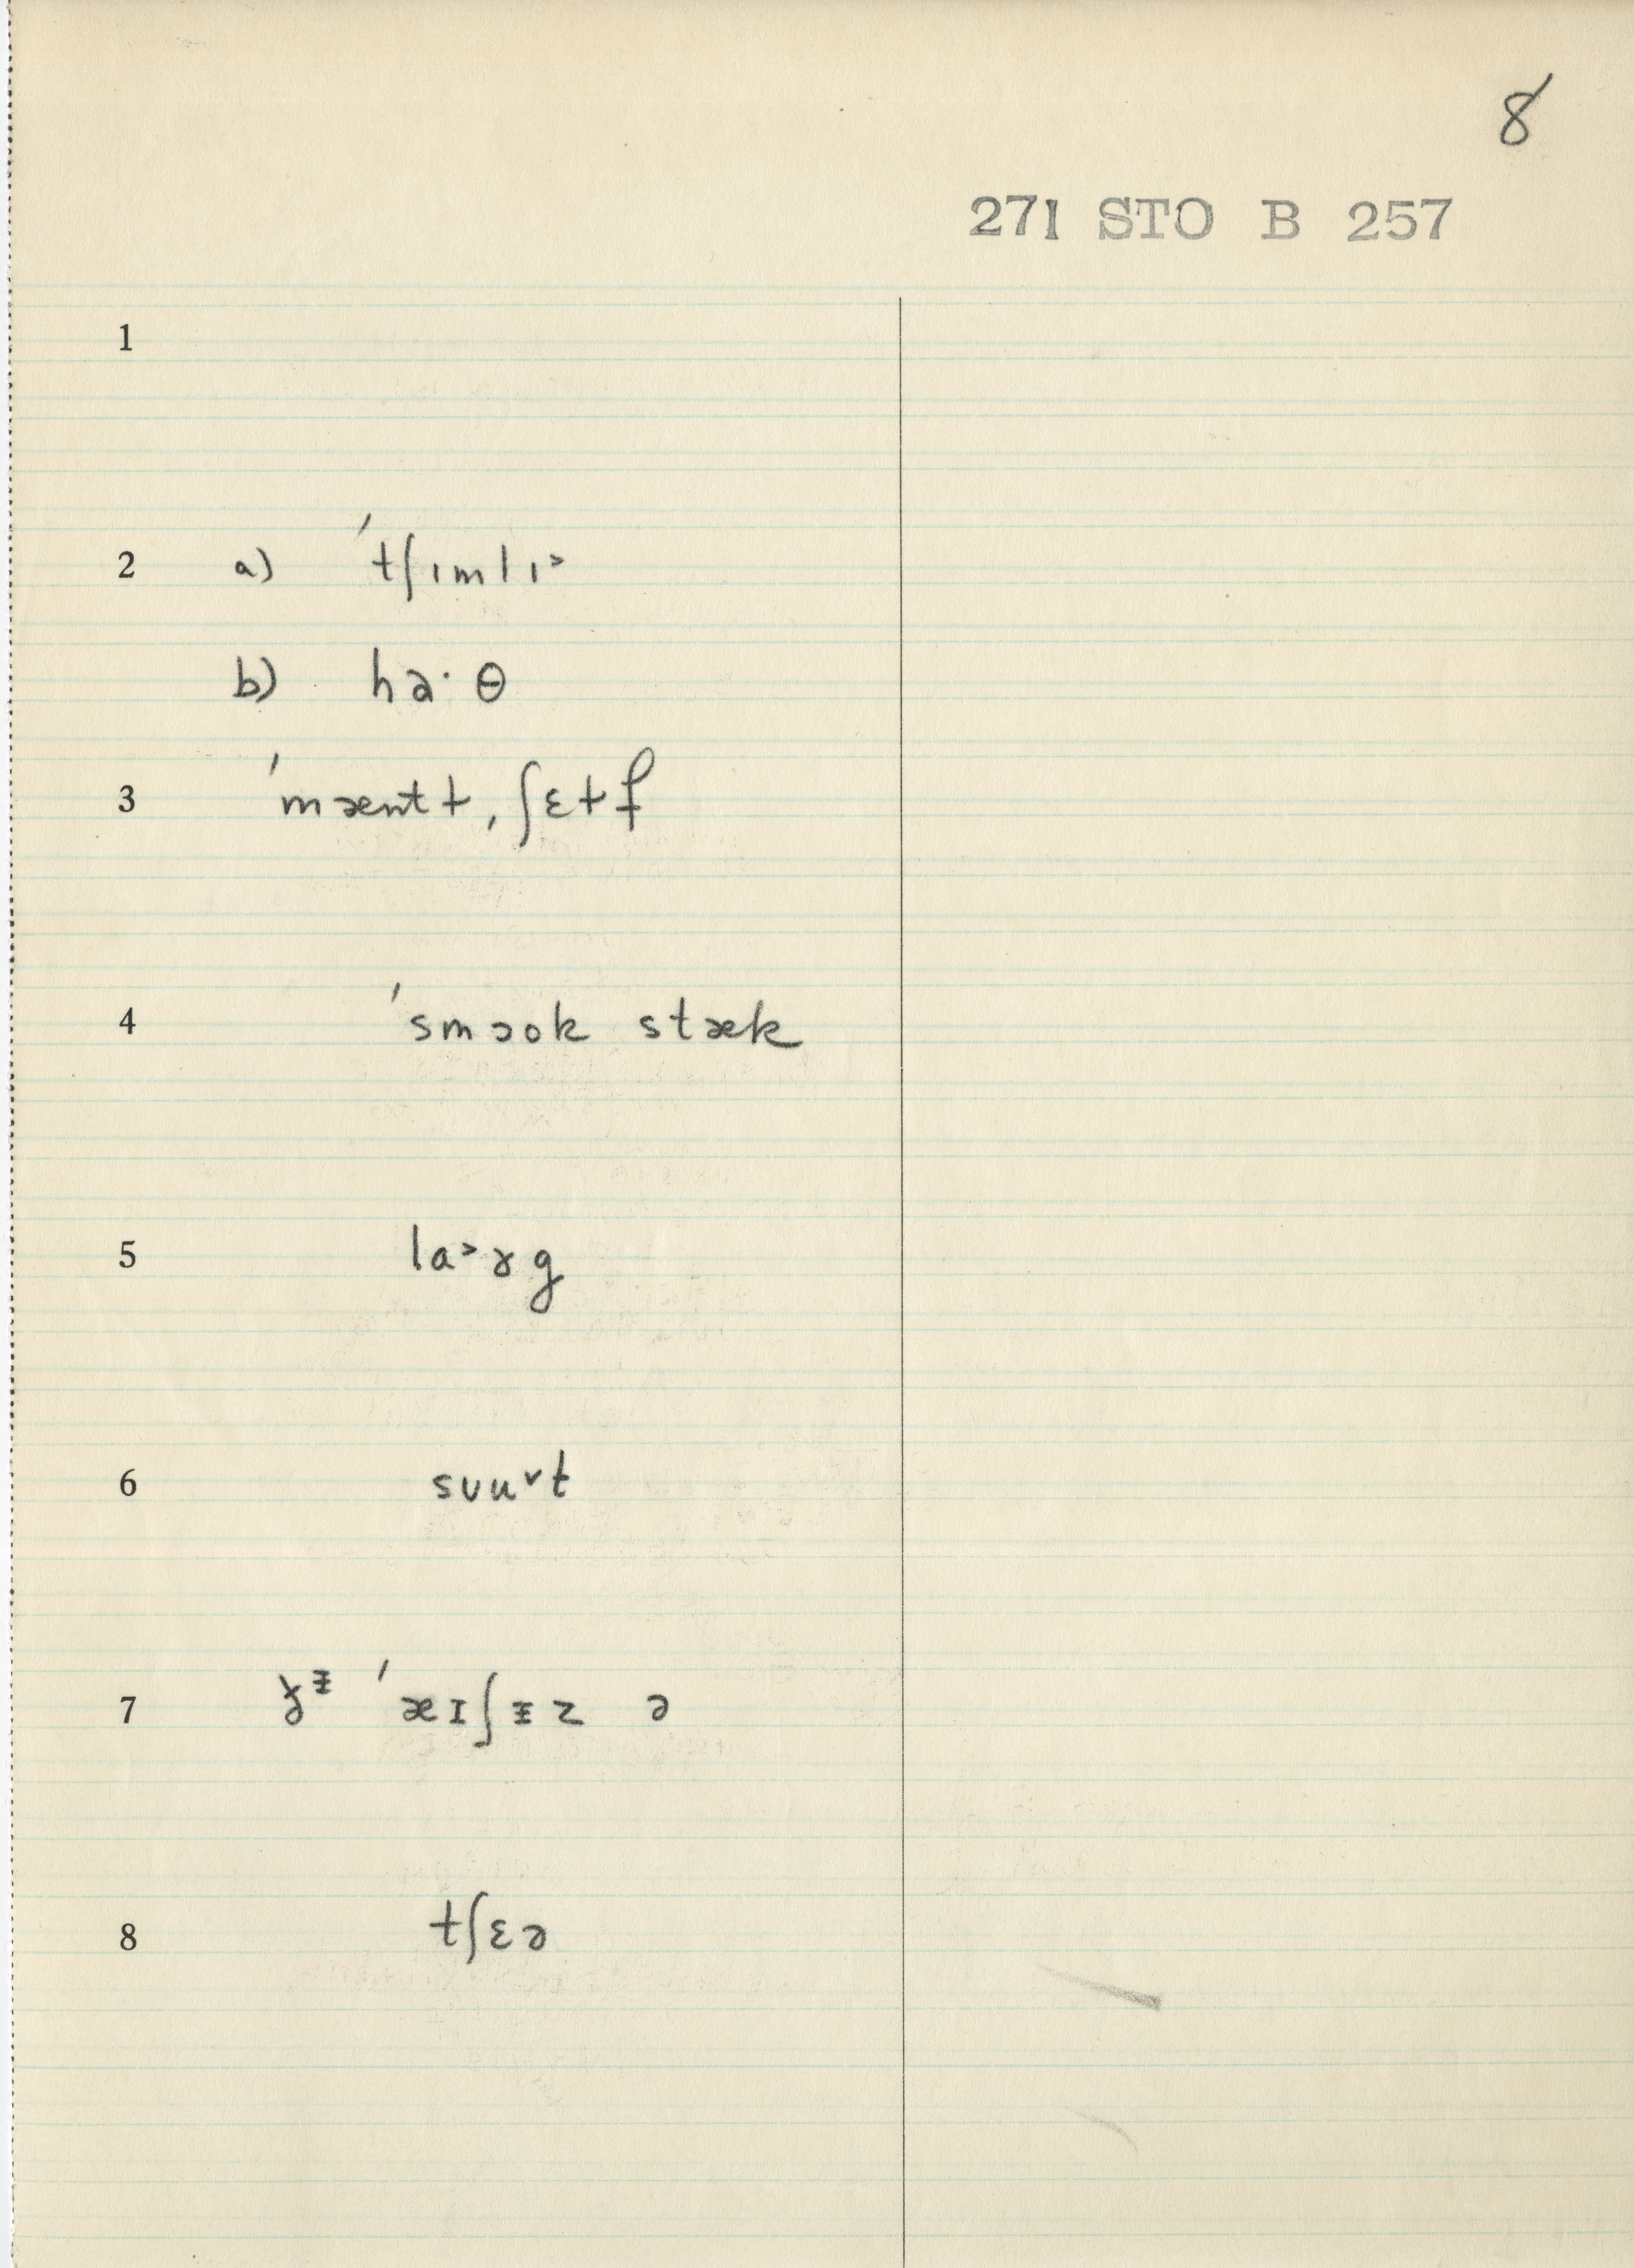 8
271 STO B 257
1
2 a) ˈtʃɪmlɪ˃
b) ha· θ
3 ˈmæntɫ, ʃɛɫf
4 ˈsmɔok stæk
5 la˃ɤg
6 sʊu˅t
7 ˈæɪʃᵻz ə
8 tʃɛə